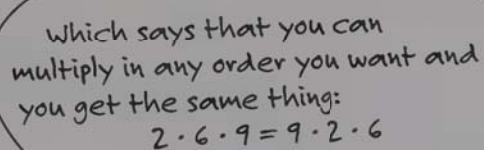 which says that you can
multiply in any order you want and
you get the same thing:
2 · 6 · 9 = 9 · 2 · 6